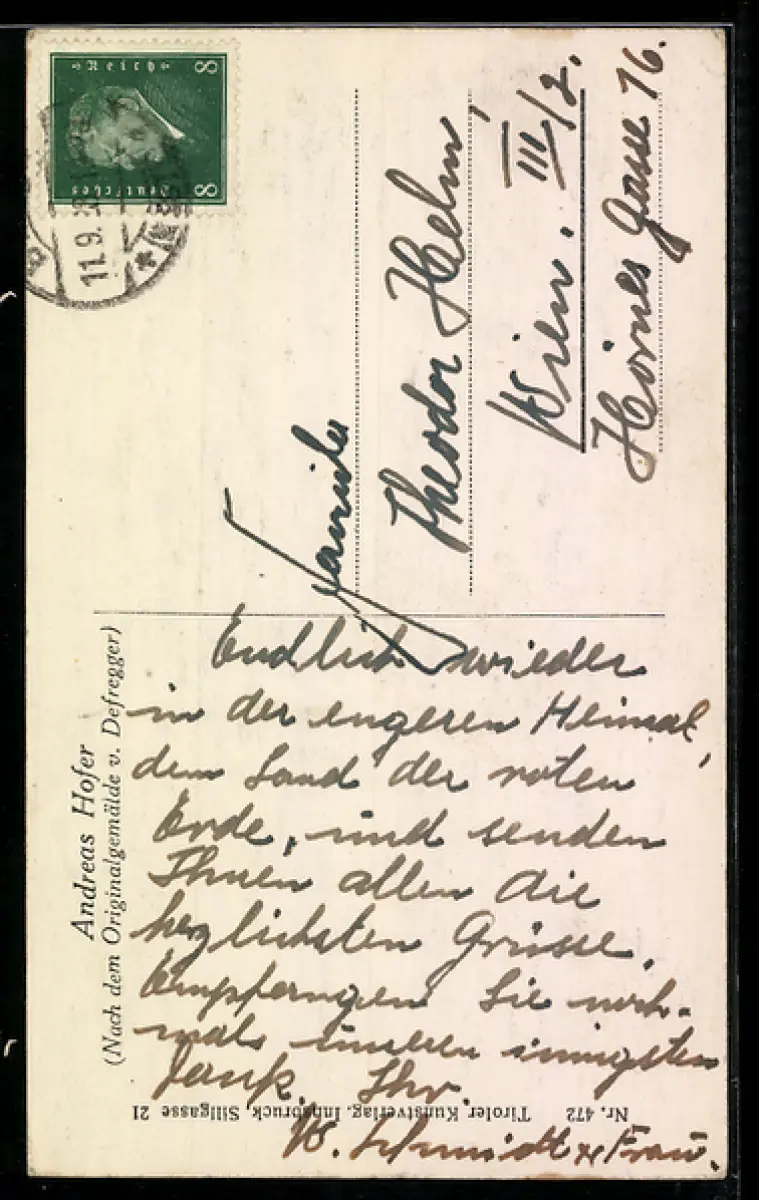 Andreas Hofer
(Nach dem Originalgemälde v. Defregger)
Endlich wieder
in der engeren Heimat,
dem Land der roten
Erde, und senden
Ihnen allen die
herzlichsten Grüsse.
Empfangen Sie noch-
mals unseren innigsten
Dank. Ihr
W. Schmidt u. Frau.
Nr. 472 Tiroler Kunstverlag, Innsbruck, Sillgasse 21
Familie
Theodor Helm,
Wien. III/2.
Hörnes Gasse 16.
8 Deutsches Reich 8
11.9.